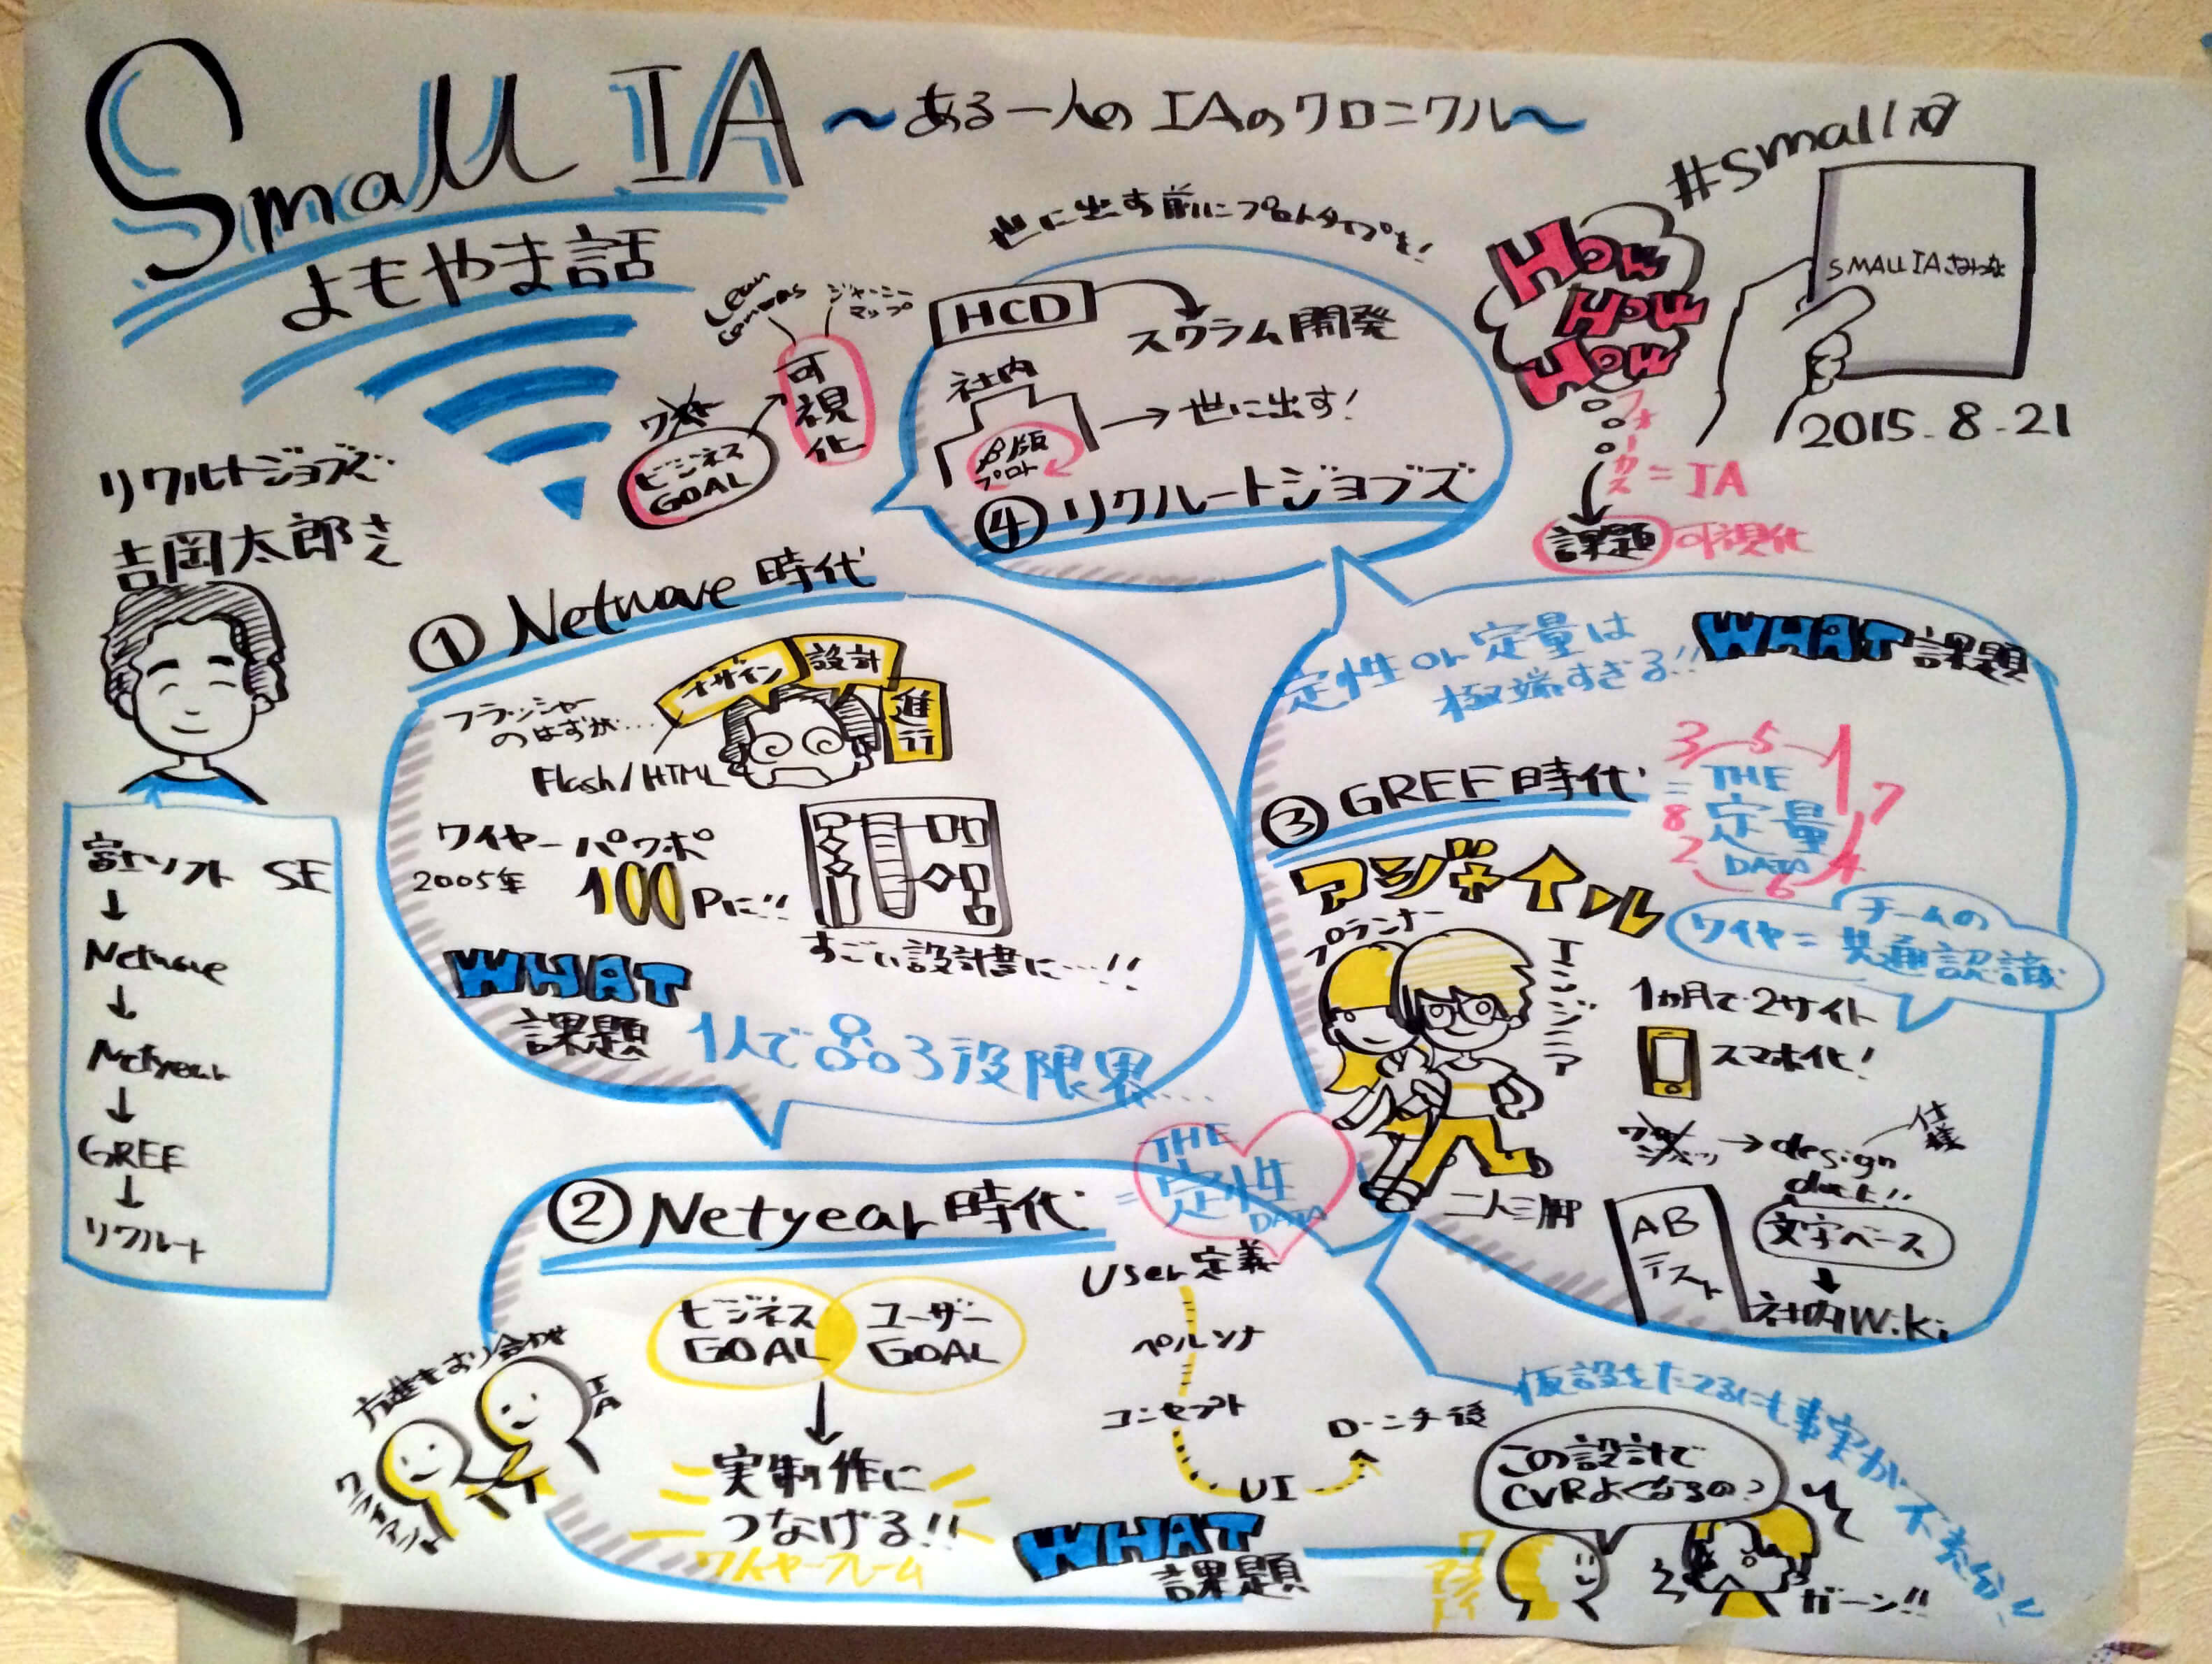 Small IA
〜ある一人のIAのクロニクル〜
よもやま話
#smallia
SMALL IA
2015.8.21
リクルートジョブズ
吉岡太郎さん
富士ソフト SE
↓
Netwave
↓
Netyear
↓
GREE
↓
リクルート
①Netwave時代
フラッシャー
のはずが…
デザイン
設計
進行
Flash/HTML
ワイヤー パワポ
2005年 100Pに!!
すごい設計書に…!!
WHAT
課題
1人で
3役限界…
②Netyear時代
=THE
定性
DATA
ビジネス
GOAL
ユーザー
GOAL
↓
実制作に
つなげる!!
ワイヤーフレーム
方進もすり合わせ
IA
クライアント
User定義
ペルソナ
コンセプト
UI
ローンチ後
WHAT
課題
この設計で
CVRよくなるの?
ガーン!!
仮設をたてるにも事実が不充分
③GREE時代
=THE
定量
DATA
3 5 1 7 4 6 2 8
定性or定量は
極端すぎる!!
WHAT課題
アジャイル
プランナー
エンジニア
二人三脚
チームの
ワイヤ=共通認識
1ヵ月で2サイト
スマホ化!
→design
仕様
文字ベース
↓
社内Wiki
AB
テスト
④リクルートジョブズ
世に出す前にプロトタイプを!
HCD
スクラム開発
社内
β版
プロト
→世に出す!
ビジネス
GOAL
可視化
Lean
Canvas
ジャーニー
マップ
HOW
HOW
HOW
フォーカス
=IA
課題
可視化